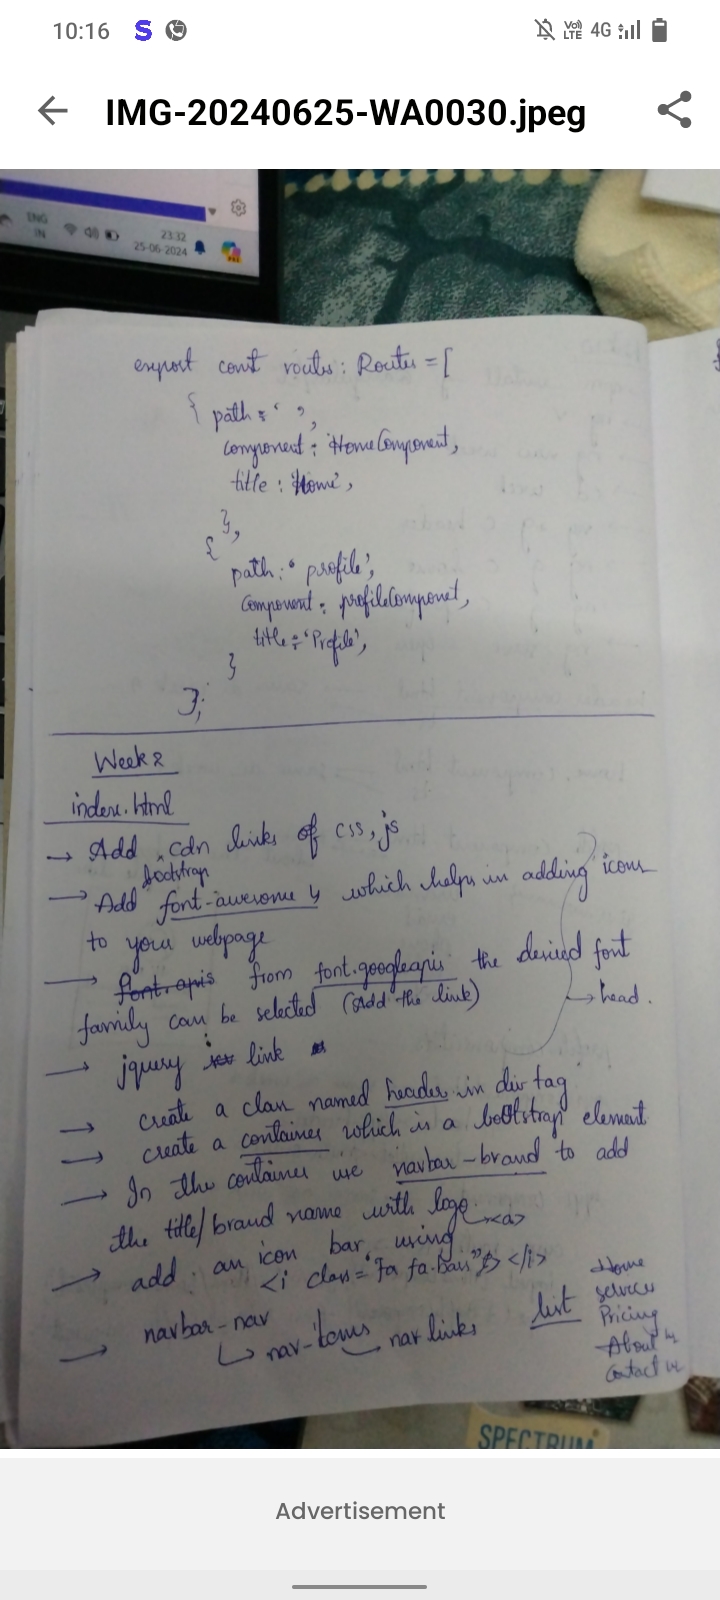 10:16 S Vo) LTE 4G
IMG-20240625-WA0030.jpeg
ENG
IN
23:32
25-06-2024
export const routes: Routes = [
{ path: ' ',
component: 'HomeComponent,
title : 'Home',
},
{
path: ' profile',
Component: profileComponet,
title: 'Profile',
}
];
Week 2
index.html
→ Add cdn links of css, js
bootstrap
→ Add font-awesome which helps in adding icons
to your webpage
→ font.apis from font.googleapis the desired font
family can be selected (Add the link)
→ head.
→ jquery link
→ create a class named header in div tag
→ create a container which is a bootstrap element
→ In the container use navbar-brand to add
the title/brand name with logo.
<a>
→ add an icon bar using
<i class="fa fa-bars"></i>
→ navbar-nav
nav-items nav links
list
Home
services
Pricing
About us
Contact us
SPECTRUM
Advertisement